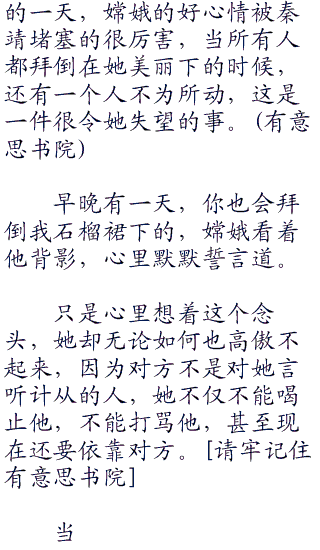 的一天，嫦娥的好心情被秦
靖堵塞的很厉害，当所有人
都拜倒在她美丽下的时候，
还有一个人不为所动，这是
一件很令她失望的事。(有意
思书院)
早晚有一天，你也会拜
倒我石榴裙下的，嫦娥看着
他背影，心里默默誓言道。
只是心里想着这个念
头，她却无论如何也高傲不
起来，因为对方不是对她言
听计从的人，她不仅不能喝
止他，不能打骂他，甚至现
在还要依靠对方。[请牢记住
有意思书院]
当